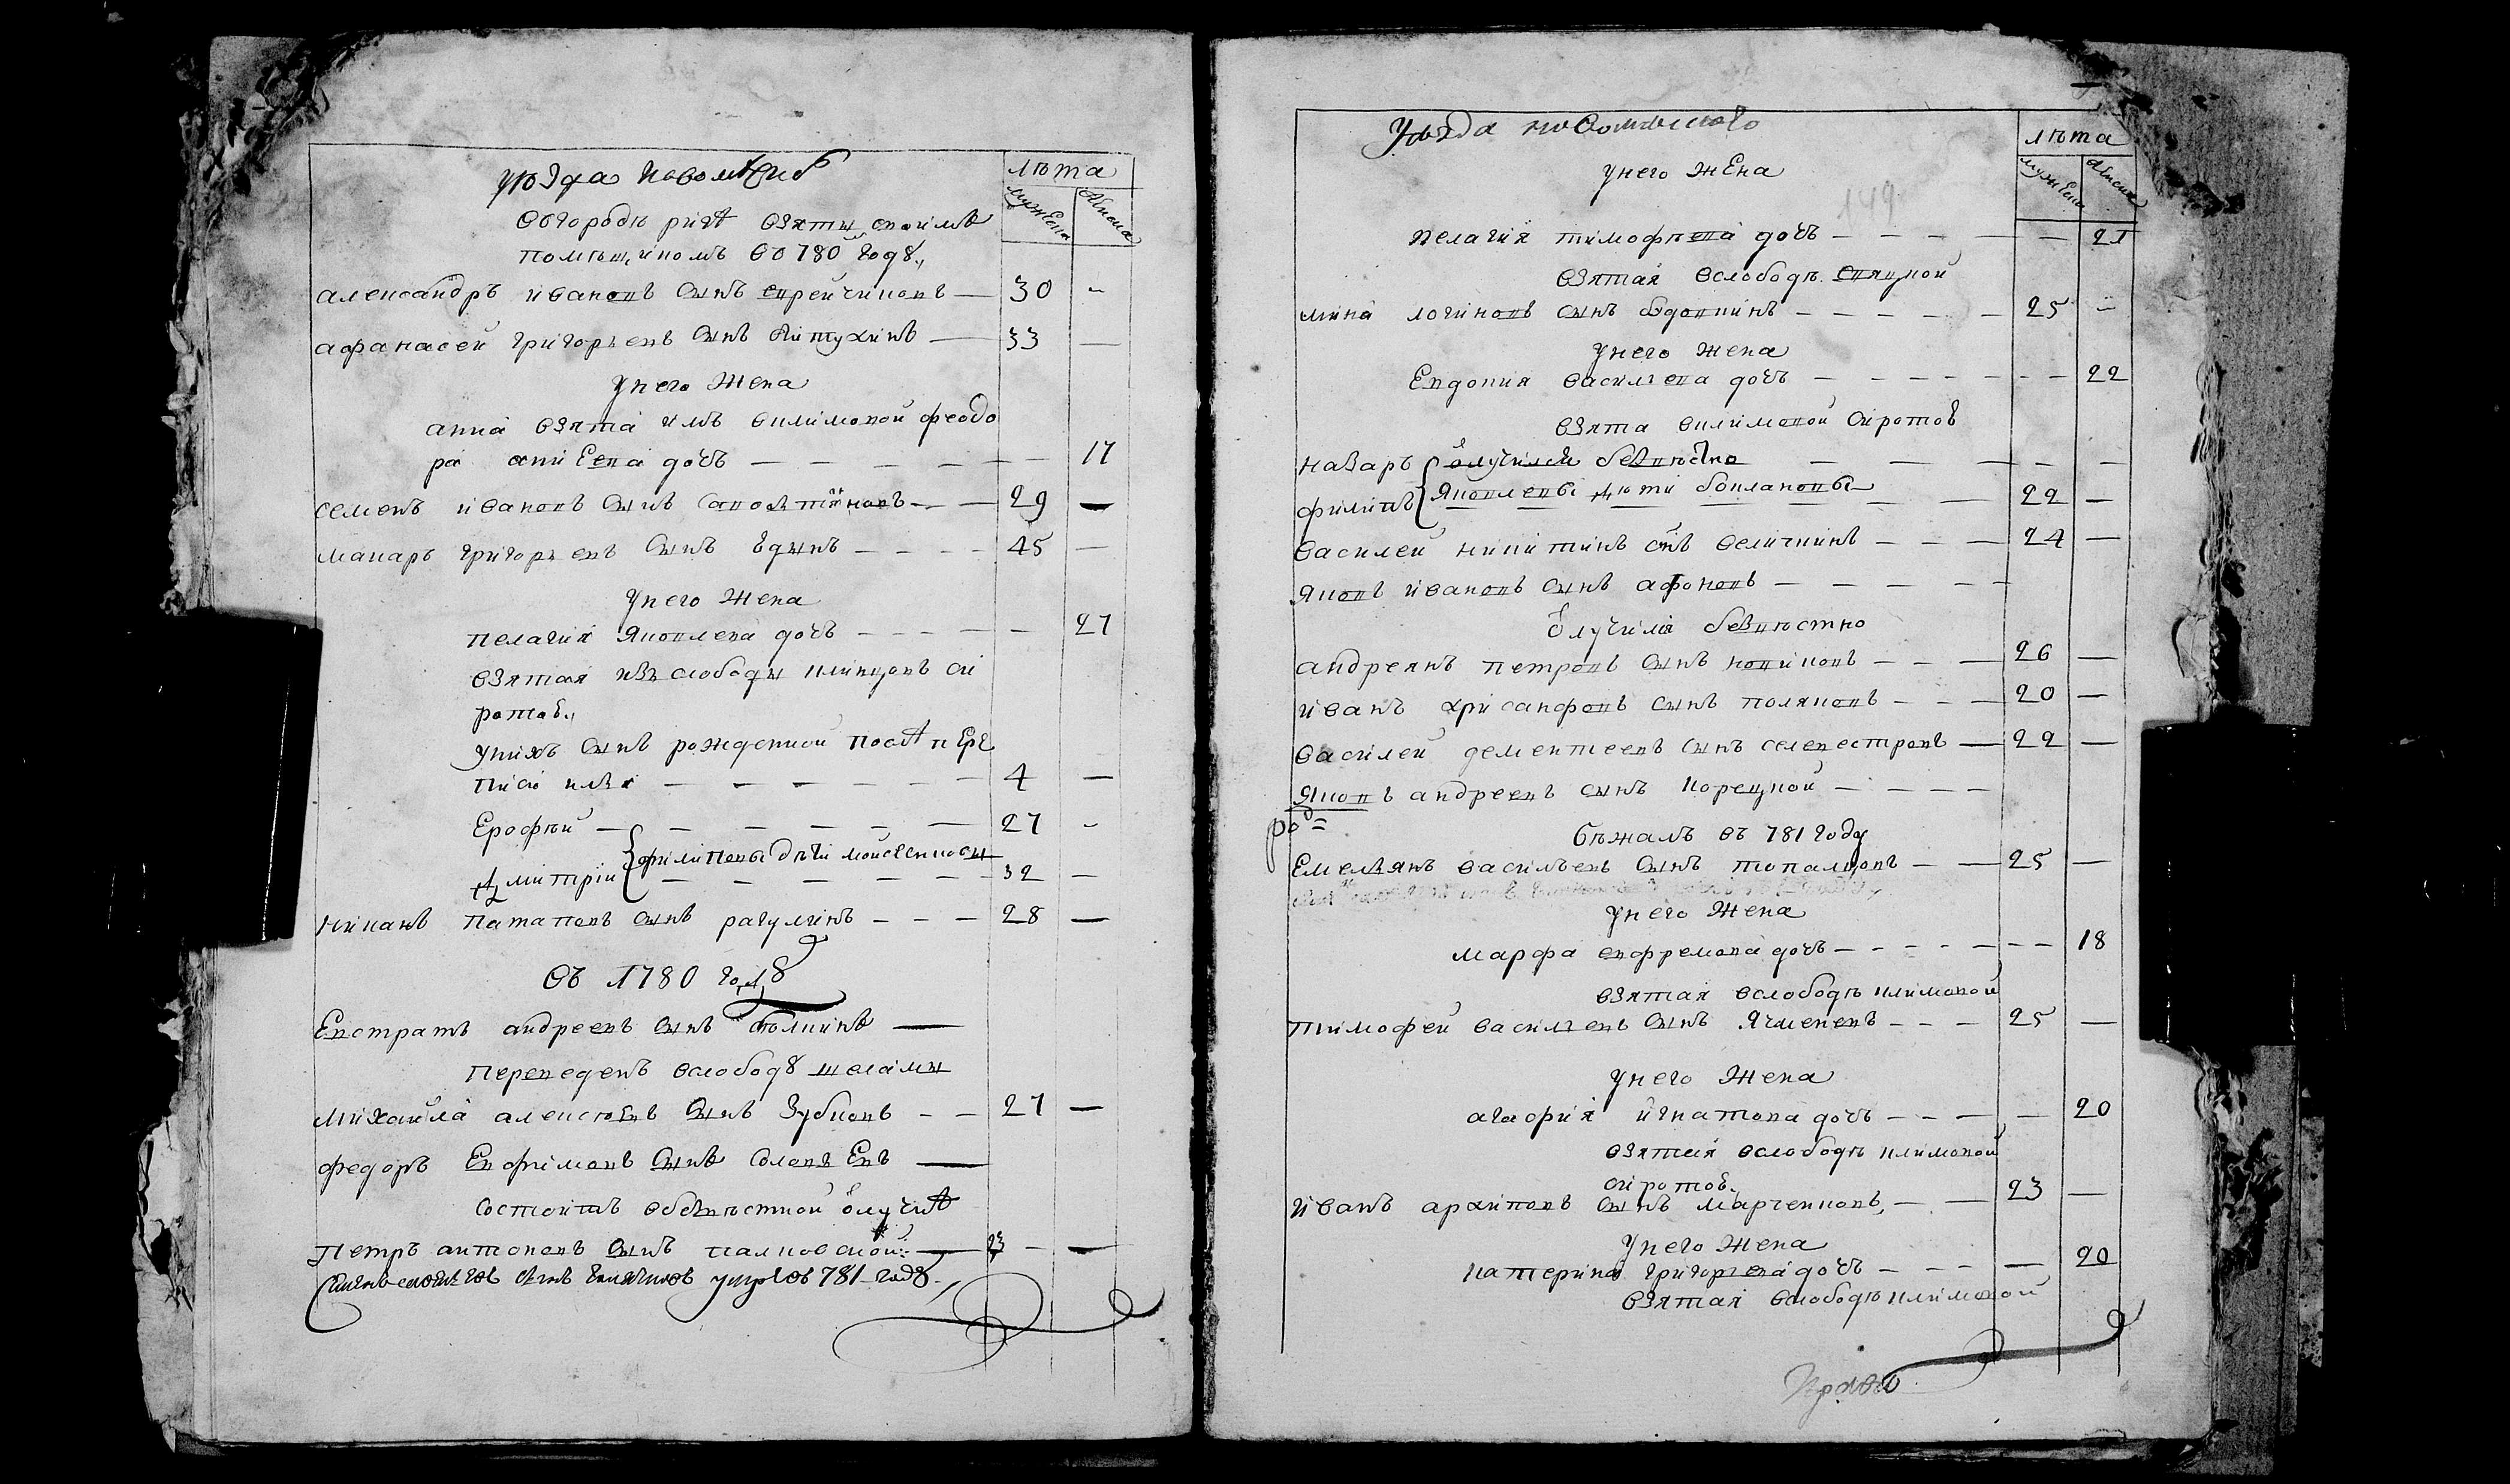 уѣзда новомѣст
лѣта
мужеска
женска
въгородѣ ригѣ взяты
помѣщикомъ во 780 году
александръ ивановъ сынъ еврейчиковъ — 30 -
афанасей григорьевъ сынъ витухинъ — 33 —
унего жена
анна взята имъ вклимовой феодо
ра сынева дочь — 17
семенъ ивановъ сынъ — 29 —
макаръ григорьевъ сынъ — 45 —
унего жена
пелагия яковлева дочь — 27
взятая изъ слободы клинцовъ си
ротою
унихъ сынъ рожденной послѣ пере
писи — 4 —
Ерофѣй — 27 -
филиповы дѣти моисеенковы
дмитрiи — 32 —
никанъ патаповъ сынъ рагулинъ — 28 —
въ 1780 году
Евстратъ андреевъ сынъ — 
переведенъ вслободу шеломы
михайла алексѣевъ сынъ зубковъ — 27 —
федоръ Ефимовъ сынъ —
состоитъ вбезвѣстной отлучкѣ
петръ антоновъ сынъ палковской — 23 —
сынъ умре въ 781 году
Уѣзда новомѣскаго
лѣта
мужеска
женска
унего жена
149
пелагия тимофѣева дочь — 21
взятая вслободѣ спяцкой
мина логиновъ сынъ — 25 -
унего жена
Евдокия васильева дочь — 22
взята вклимовой сиротою
назаръ отлучился безвѣстно —
филипъ яковлевы дѣти — 22 —
василей никитинъ сынъ величкинъ — 24 —
яковъ ивановъ сынъ афоновъ —
отлучился безвѣстно
андреянъ петровъ сынъ новиковъ — 26 —
иванъ хрисанфовъ сынъ поляковъ — 20 —
василей дементеевъ сынъ селевестровъ — 22 —
яковъ андреевъ сынъ корецкой —
бежалъ въ 781 году
Емельянъ васильевъ сынъ топалцовъ — 25 —
унего жена
марфа ефремова дочь — 18
взятая вслободѣ климовой
тимофей васильевъ сынъ Ячменевъ — 25 —
унего жена
агафия игнатова дочь — 20
взятая вслободѣ климовой
сиротою
иванъ архиповъ сынъ марченковъ — 23 —
унего жена
катерина григорьева дочь — 20
взятая вслободѣ климовой